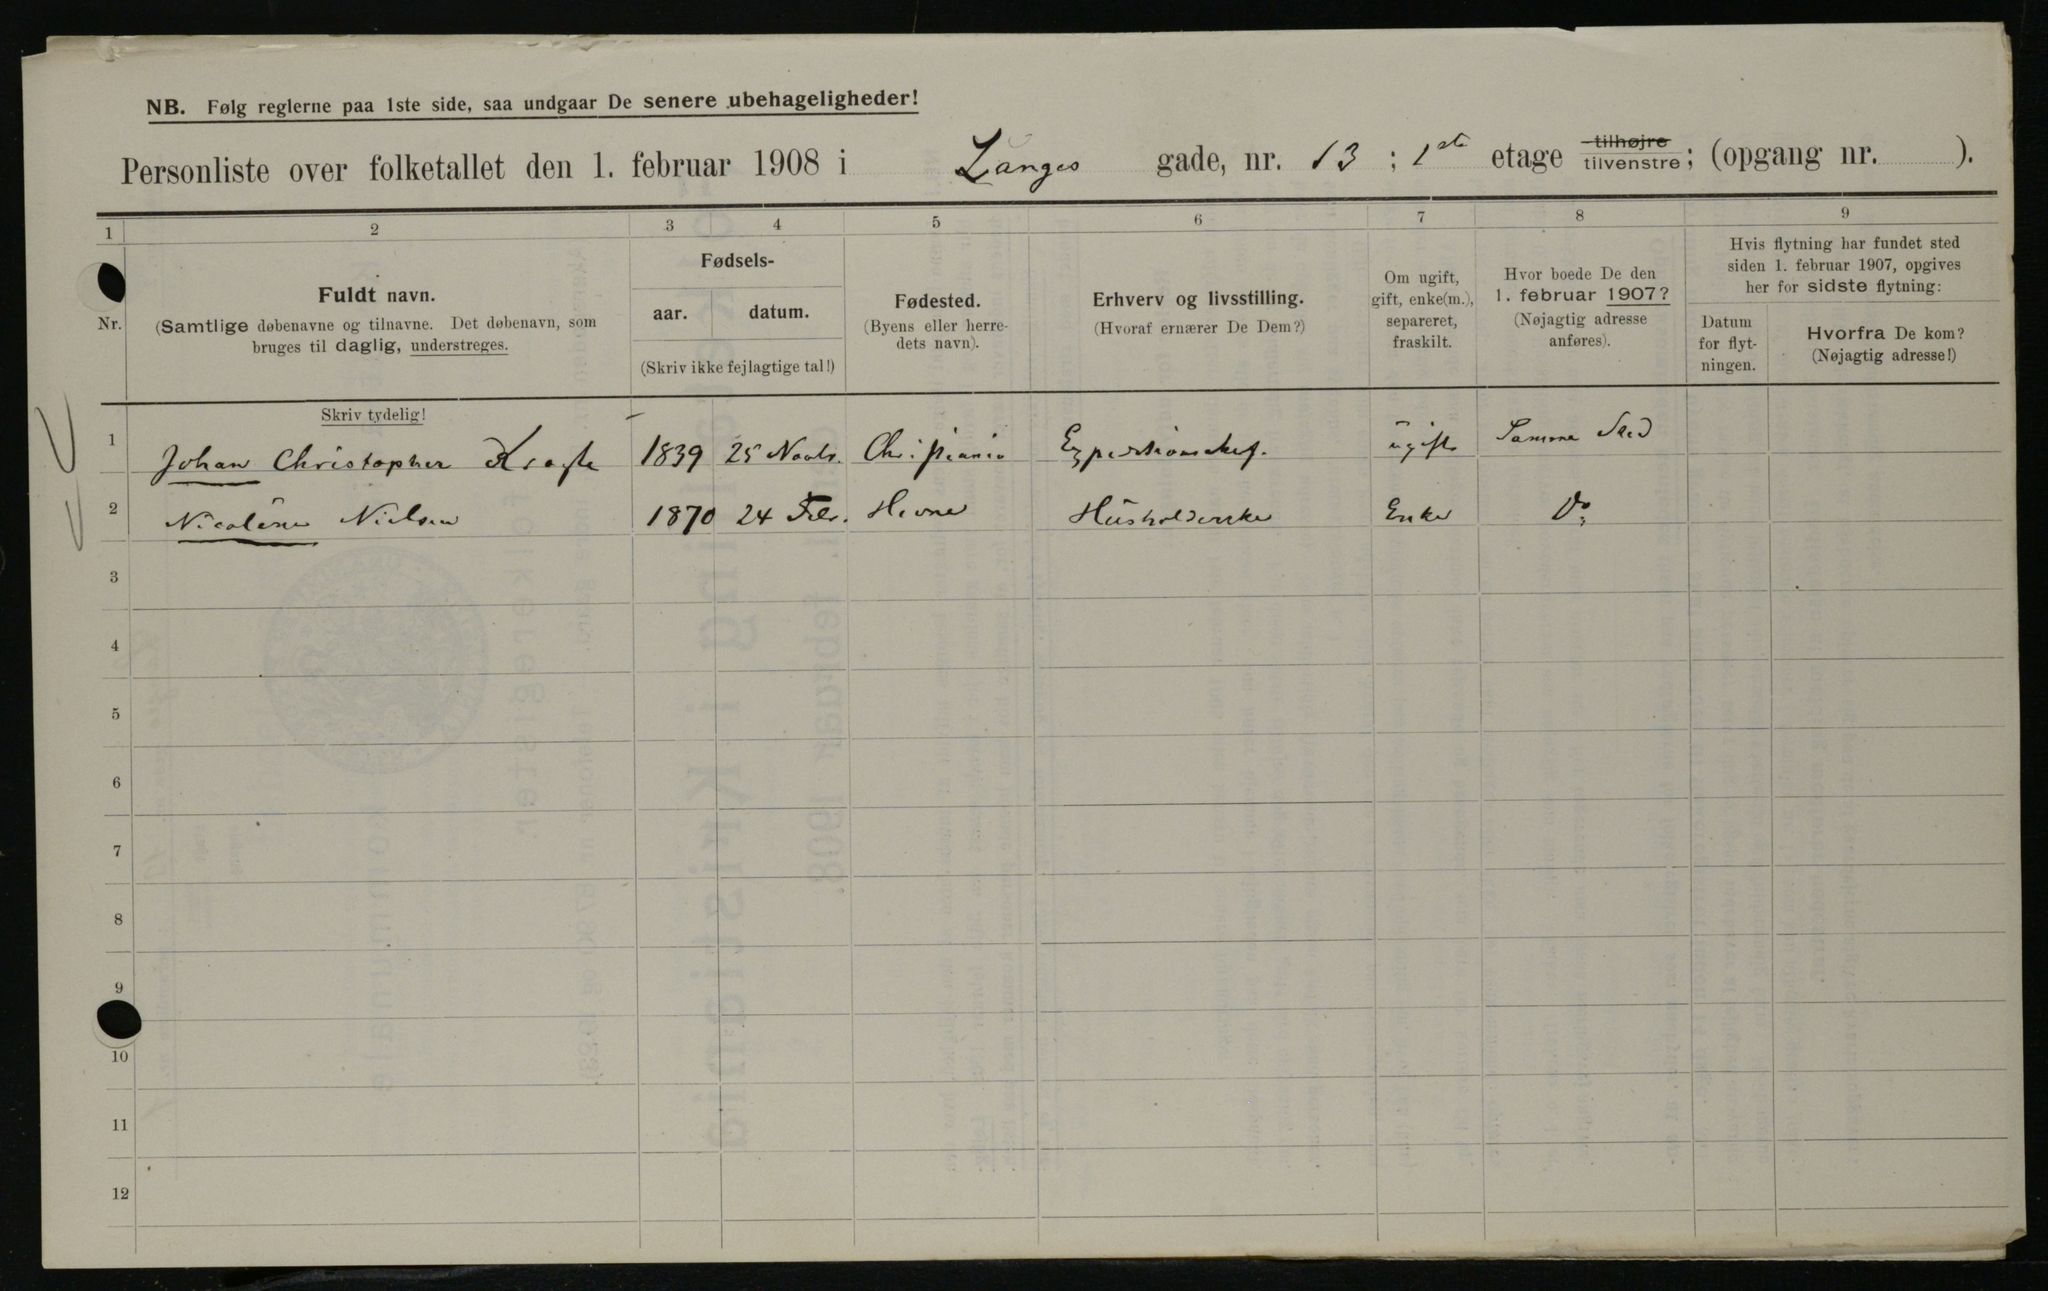 NB. Følg reglerne paa 1ste side, saa undgaar De senere ubehageligheder!
Personliste over folketallet den 1. februar 1908 i Langes gade, nr. 13 ; 1ste etage tilhøjre tilvenstre; (opgang nr. ).
1 2 3 4 5 6 7 8 9
Nr.
Fuldt navn.
(Samtlige døbenavne og tilnavne. Det døbenavn, som
bruges til daglig, understreges.
Skriv tydelig!
Fødsels-
aar. datum.
(Skriv ikke fejlagtige tal!)
Fødested.
(Byens eller herre-
dets navn).
Erhverv og livsstilling.
(Hvoraf ernærer De Dem?)
Om ugift,
gift, enke(m.),
separeret,
fraskilt.
Hvor boede De den
1. februar 1907?
(Nøjagtig adresse
anføres).
Hvis flytning har fundet sted
siden 1. februar 1907, opgives
her for sidste flytning:
Datum
for flyt-
ningen.
Hvorfra De kom?
(Nøjagtig adresse!)
1 Johan Christopher 1839 25 Novbr. Christiania ugift Samme Sted
2 Nicoline Nielsen 1870 24 Febr. Hevne Husholderske Enke Do
3
4
5
6
7
8
9
10
11
12